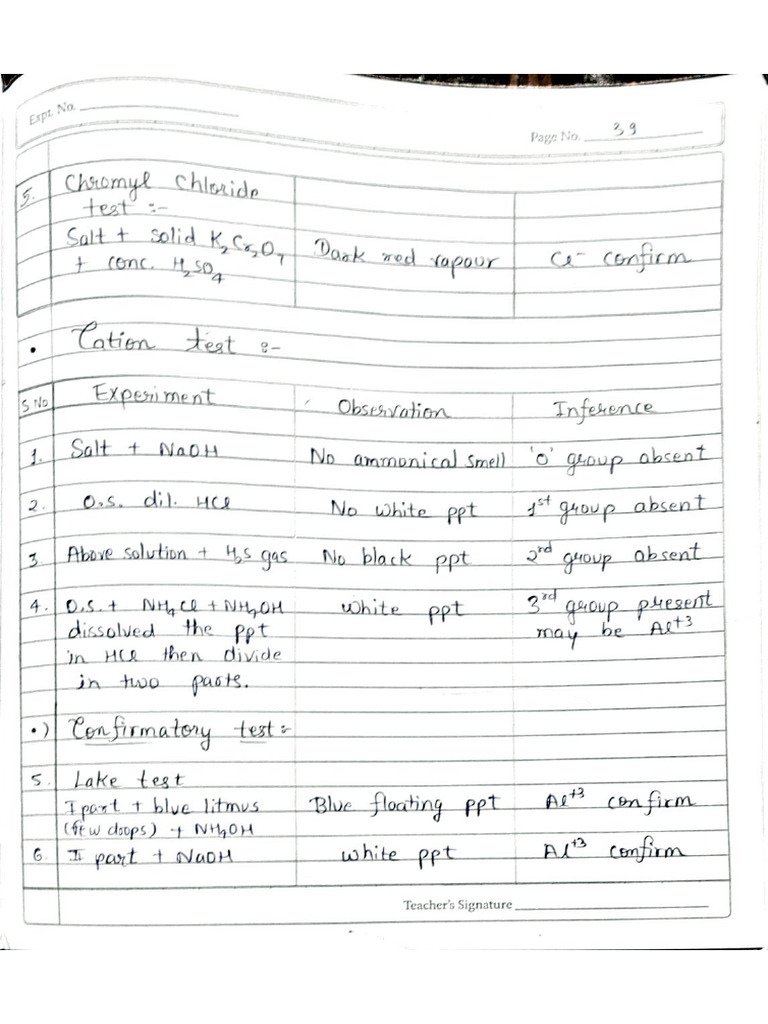 Expt. No.
Page No. 39
5. Chromyl Chloride
test :-
Salt + solid K2Cr2O7 Dark red vapour Cl- confirm
+ conc. H2SO4
• Cation test :-
S No Experiment Observation Inference
1. Salt + NaOH No ammonical smell 'o' group absent
2. O.S. dil. HCl No white ppt 1st group absent
3 Above solution + H2S gas No black ppt 2rd group absent
4. O.S + NH4Cl + NH4OH white ppt 3rd group present
dissolved the ppt may be Al+3
in HCl then divide
in two parts.
•) Confirmatory test :-
5. Lake test
I part + blue litmus Blue floating ppt Al+3 confirm
(few drops) + NH4OH
6. II part + NaOH white ppt Al+3 confirm
Teacher's Signature